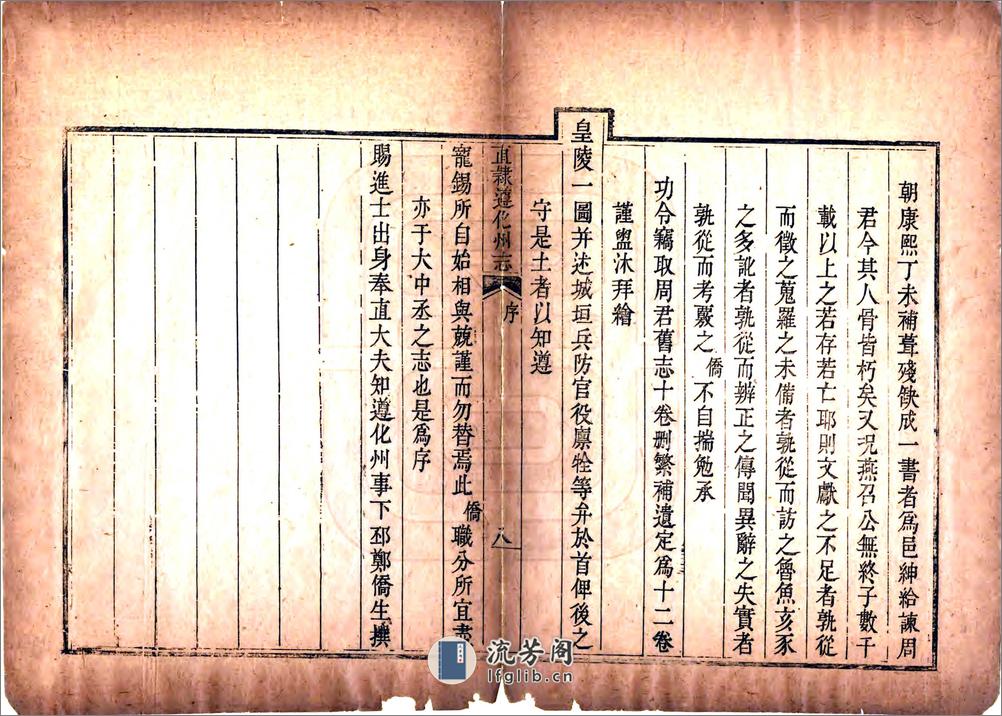 朝康熙丁未補葺殘缺成一書者爲邑紳給諫周
君今其人骨皆朽矣又况燕召公無終子數千
載以上之若存若亡耶則文獻之不足者孰從
而徵之蒐羅之未備者孰從而訪之魯魚亥豕
之多訛者孰從而辨正之傳聞異辭之失實者
孰從而考覈之僑不自揣勉承
功令竊取周君舊志十卷刪繁補遺定爲十二卷
謹盥沐拜繪
皇陵一圖并述城垣兵防官役廪牲等弁於首俾後之
守是土者以知遵
直隸遵化州志 序 八
寵錫所自始相與兢謹而勿替焉此僑職分所宜盡
亦于大中丞之志也是爲序
賜進士出身奉直大夫知遵化州事下邳鄭僑生撰
流芳阁
lfglib.cn